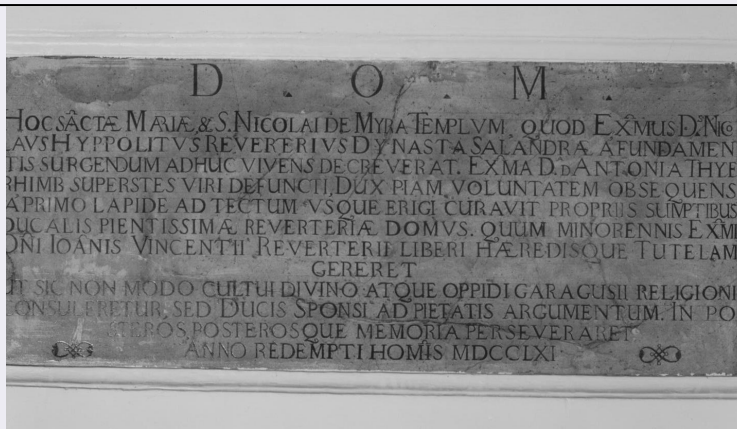 D . O . M .
HOC SÃCTÆ MARIÆ & S. NICOLAI DE MYRA TEMPLVM, QUOD EXM̃US D.Ñ NICO
LAVS HYPPOLITVS REVERTERIVS DYNASTA SALANDRÆ A FUNDAMEN
TIS SURGENDUM ADHUC VIVENS DECREVERAT. EXMA D.ÑD ANTONIA THYE
RHIMB SUPERSTES VIRI DEFUNCTI, DUX PIAM VOLUNTATEM OBSEQUENS
A PRIMO LAPIDE AD TECTUM VSQUE ERIGI CURAVIT PROPRIIS SUM̃PTIBUS
DUCALIS PIENTISSIMÆ REVERTERIÆ DOMVS. QUUM MINORENNIS EXM̃I
DÑI IOÃNIS VINCENTII REVERTERII LIBERI HÆREDISQUE TUTELAM
GERERET
UT SIC NON MODO CULTUI DIVINO ATQUE OPPIDI GARAGUSII RELIGIONI
CONSULERETUR, SED DUCIS SPONSI AD PIETATIS ARGUMENTUM. IN PO
STEROS POSTEROSQUE MEMORIA PERSEVERARET
ANNO REDEMPTI HOM̃IS MDCCLXI